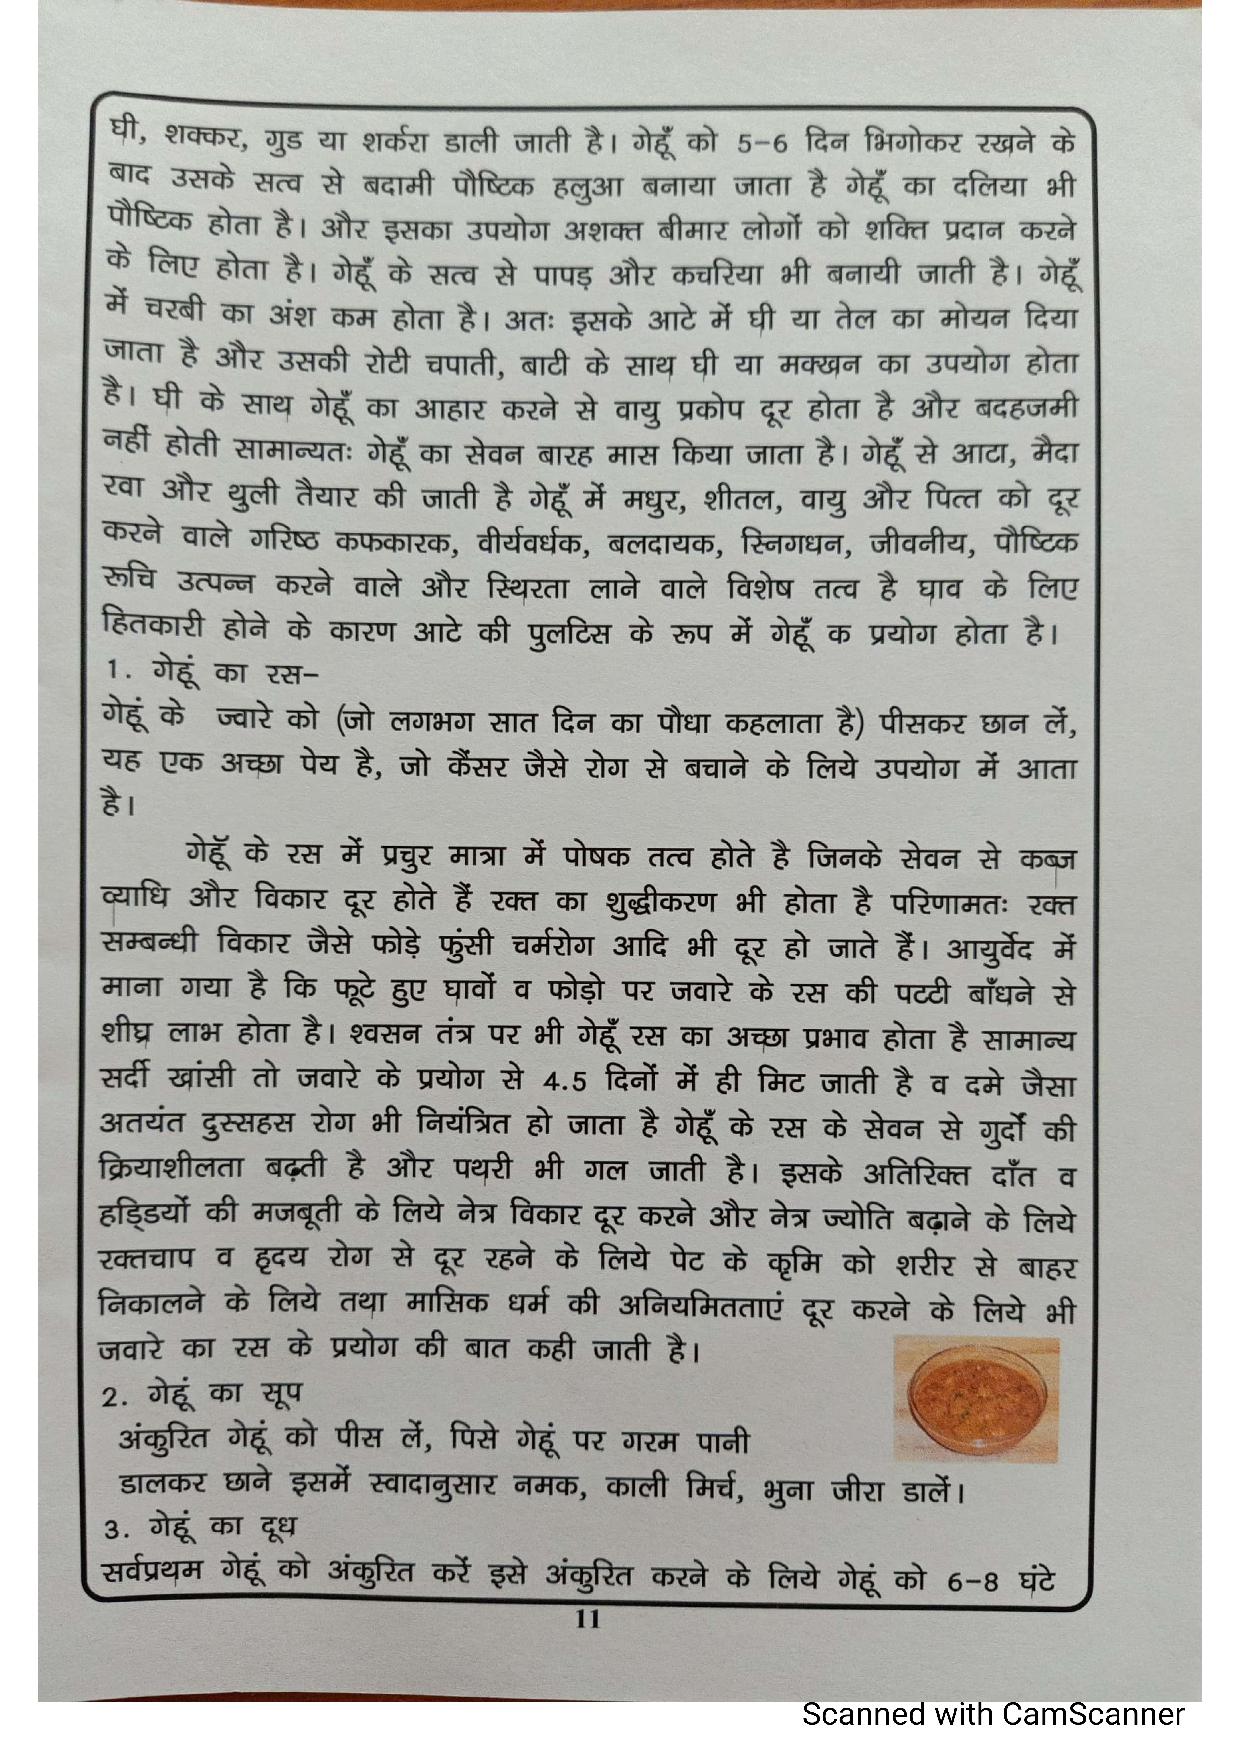 घी, शक्कर, गुड या शर्करा डाली जाती है। गेहूँ को 5-6 दिन भिगोकर रखने के
बाद उसके सत्व से बदामी पौष्टिक हलुआ बनाया जाता है गेहूँ का दलिया भी
पौष्टिक होता है। और इसका उपयोग अशक्त बीमार लोगों को शक्ति प्रदान करने
के लिए होता है। गेहूँ के सत्व से पापड़ और कचरिया भी बनायी जाती है। गेहूँ
में चरबी का अंश कम होता है। अतः इसके आटे में घी या तेल का मोयन दिया
जाता है और उसकी रोटी चपाती, बाटी के साथ घी या मक्खन का उपयोग होता
है। घी के साथ गेहूँ का आहार करने से वायु प्रकोप दूर होता है और बदहजमी
नहीं होती सामान्यतः गेहूँ का सेवन बारह मास किया जाता है। गेहूँ से आटा, मैदा
रवा और थुली तैयार की जाती है गेहूँ में मधुर, शीतल, वायु और पित्त को दूर
करने वाले गरिष्ठ कफकारक, वीर्यवर्धक, बलदायक, स्निगधन, जीवनीय, पौष्टिक
रूचि उत्पन्न करने वाले और स्थिरता लाने वाले विशेष तत्व है घाव के लिए
हितकारी होने के कारण आटे की पुलटिस के रूप में गेहूँ क प्रयोग होता है।
1. गेहूं का रस-
गेहूं के ज्वारे को (जो लगभग सात दिन का पौधा कहलाता है) पीसकर छान लें,
यह एक अच्छा पेय है, जो कैंसर जैसे रोग से बचाने के लिये उपयोग में आता
है।
गेहूॅ के रस में प्रचुर मात्रा में पोषक तत्व होते है जिनके सेवन से कब्ज
व्याधि और विकार दूर होते हैं रक्त का शुद्धीकरण भी होता है परिणामतः रक्त
सम्बन्धी विकार जैसे फोड़े फुंसी चर्मरोग आदि भी दूर हो जाते हैं। आयुर्वेद में
माना गया है कि फूटे हुए घावों व फोड़ो पर जवारे के रस की पटटी बाँधने से
शीघ्र लाभ होता है। श्वसन तंत्र पर भी गेहूँ रस का अच्छा प्रभाव होता है सामान्य
सर्दी खांसी तो जवारे के प्रयोग से 4.5 दिनों में ही मिट जाती है व दमे जैसा
अतयंत दुस्सहस रोग भी नियंत्रित हो जाता है गेहूँ के रस के सेवन से गुर्दों की
क्रियाशीलता बढ़ती है और पथरी भी गल जाती है। इसके अतिरिक्त दाँत व
हडि्डयों की मजबूती के लिये नेत्र विकार दूर करने और नेत्र ज्योति बढ़ाने के लिये
रक्तचाप व हृदय रोग से दूर रहने के लिये पेट के कृमि को शरीर से बाहर
निकालने के लिये तथा मासिक धर्म की अनियमितताएं दूर करने के लिये भी
जवारे का रस के प्रयोग की बात कही जाती है।
2. गेहूं का सूप
अंकुरित गेहूं को पीस लें, पिसे गेहूं पर गरम पानी
डालकर छाने इसमें स्वादानुसार नमक, काली मिर्च, भुना जीरा डालें।
3. गेहूं का दूध
सर्वप्रथम गेहूं को अंकुरित करें इसे अंकुरित करने के लिये गेहूं को 6-8 घंटे
11
Scanned with CamScanner